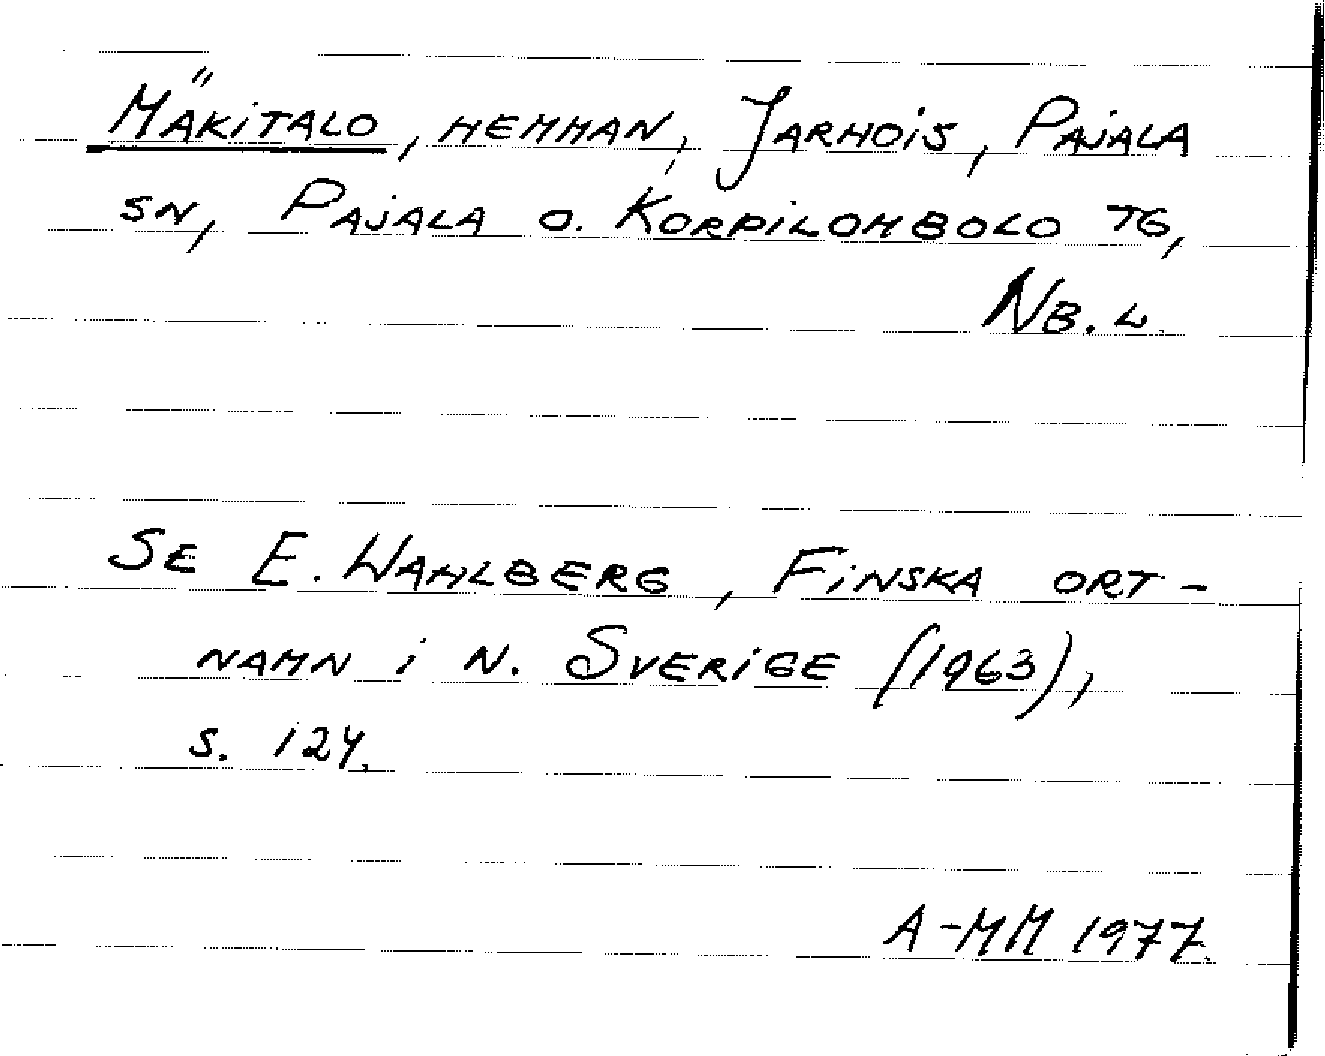 MÄKITALO, HEMMAN, JARHOIS, PAJALA
SN, PAJALA O. KORPILOMBOLO TG,
NB. L.
SE E. WAHLBERG, FINSKA ORT-
NAMN I N. SVERIGE (1963),
S. 124.
A-MM 1977.